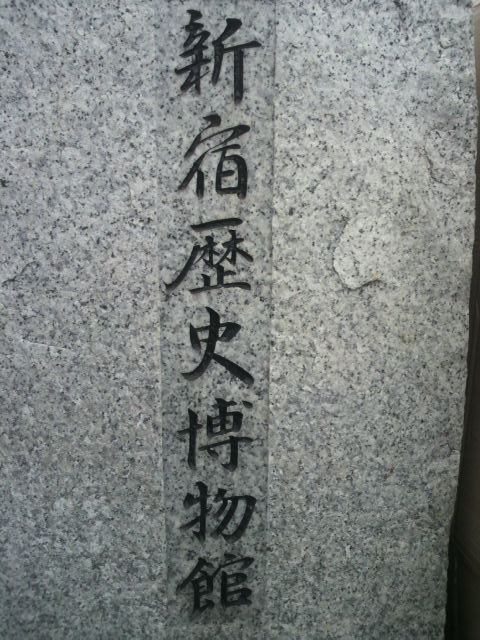 新宿歴史博物館